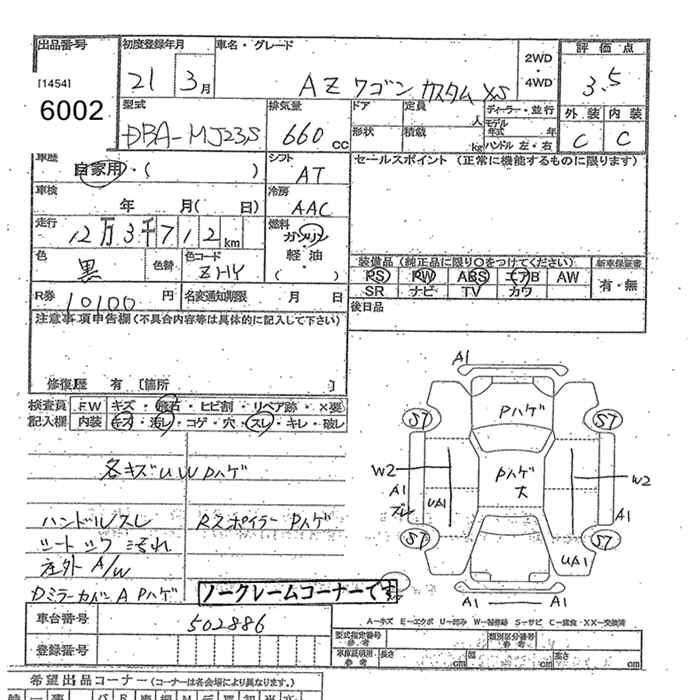 出品番号 初度登録年月 車名・グレード 2WD・4WD 評価点
[1454] 21 3月 AZワゴン カスタム XS 3.5
6002 型式 排気量 ドア 定員 人 ディーラー・並行 外装 内装
DBA-MJ23S 660cc 形状 積載 kg モデル年式 年 C C
ハンドル 左・右
車歴 自家用・( ) シフト AT セールスポイント (正常に機能するものに限ります)
車検 年 月( 日) 冷房 AAC
走行 12万3千712km 燃料 ガソリン
色 黒 色替 色コード ZHY 軽油 ( )
装備品 (純正品に限り○をつけてください) 新車保証書
PS PW ABS エアB AW 有・無
SR ナビ TV カワ
R券 10100円 名変通知期限 月 日 後日品
注意事項申告欄 (不具合内容等は具体的に記入して下さい)
修復歴 有 [箇所
検査員 FW キズ・飛石・ヒビ割・リペア跡・×要
記入欄 内装 キズ・汚レ・コゲ・穴・スレ・キレ・破レ
各キズUW Pハゲ
ハンドルスレ Rスポイラー Pハゲ
シートシワ 汚れ
左外 A/W
DミラーカバーA Pハゲ
ノークレームコーナーです
A1
Pハゲ
S7 S7
W2 Pハゲ大 W2
A1 スレ UA1 A1
S7 S7
UA1
A1 A1
A-キズ E-エクボ U-凹み W-補修跡 S-サビ C-腐食 XX-交換済
車台番号 502886
登録番号
型式指定番号 参考 類別区分番号 参考
車庫証明用 参考 長さ cm 幅 cm 高さ cm
希望出品コーナー (コーナーは各会場により異なります。)